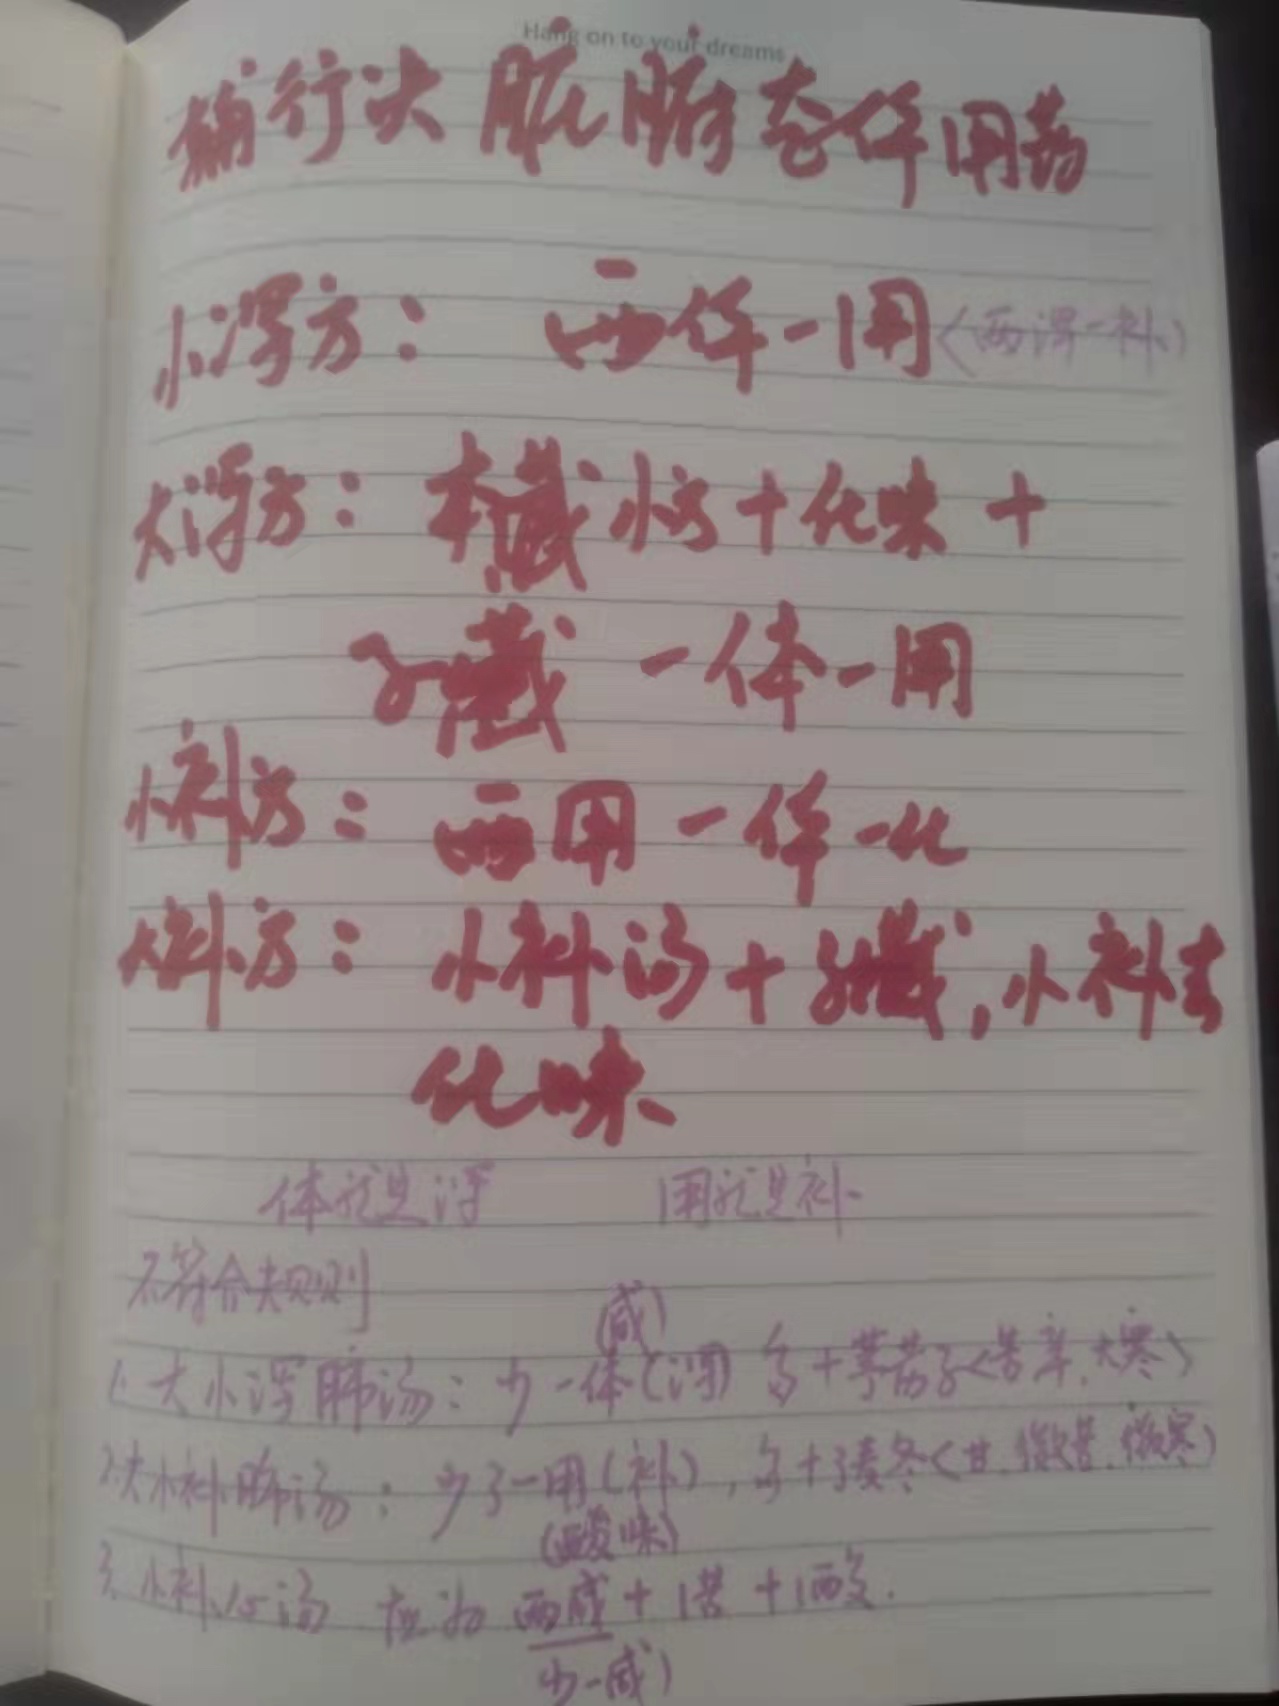 Hang on to your dreams
辅行诀 脏腑 体用药
小泻方： 两体一用（两泻一补）
大泻方：本藏小方＋化味＋
子藏 一体一用
小补方：两用一体一化
大补方：小补汤＋子藏，小补去
化味
体就是泻 用就是补
不符合规则
（咸）
1. 大小泻肺汤：少一体（泻） 多＋葶苈子（苦辛，大寒）
2. 大小补肺汤：少了一用（补），多＋麦冬（甘，微苦，微寒）
（酸味）
3. 小补心汤 应为 两咸＋1苦＋1酸．
少一咸）